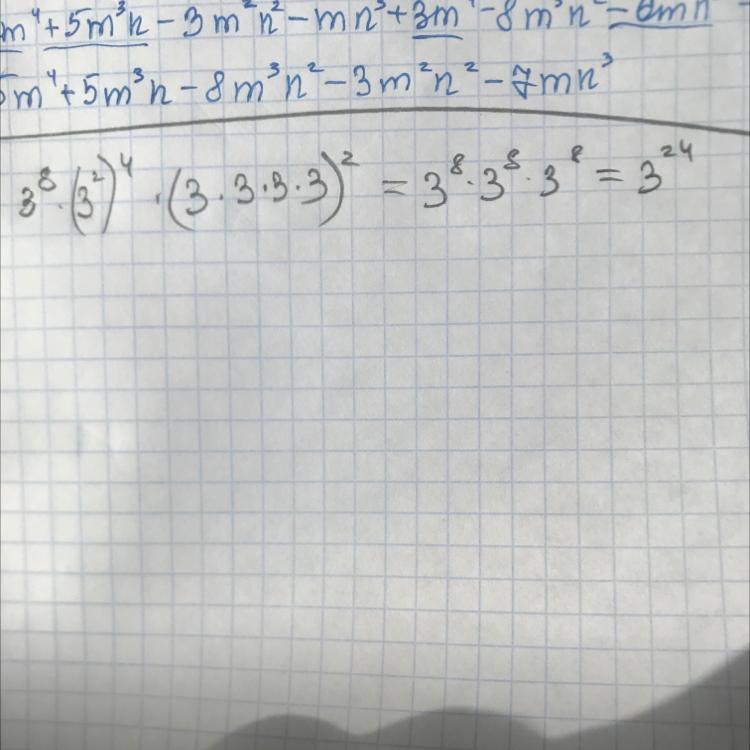 m⁴ + 5m³n − 3m²n² − mn³ + 3m⁴ − 8m³n² − 6mn
5m⁴ + 5m³n − 8m³n² − 3m²n² − 7mn³
3⁸ · (3²)⁴ · (3 · 3 · 3 · 3)² = 3⁸ · 3⁸ · 3⁸ = 3²⁴